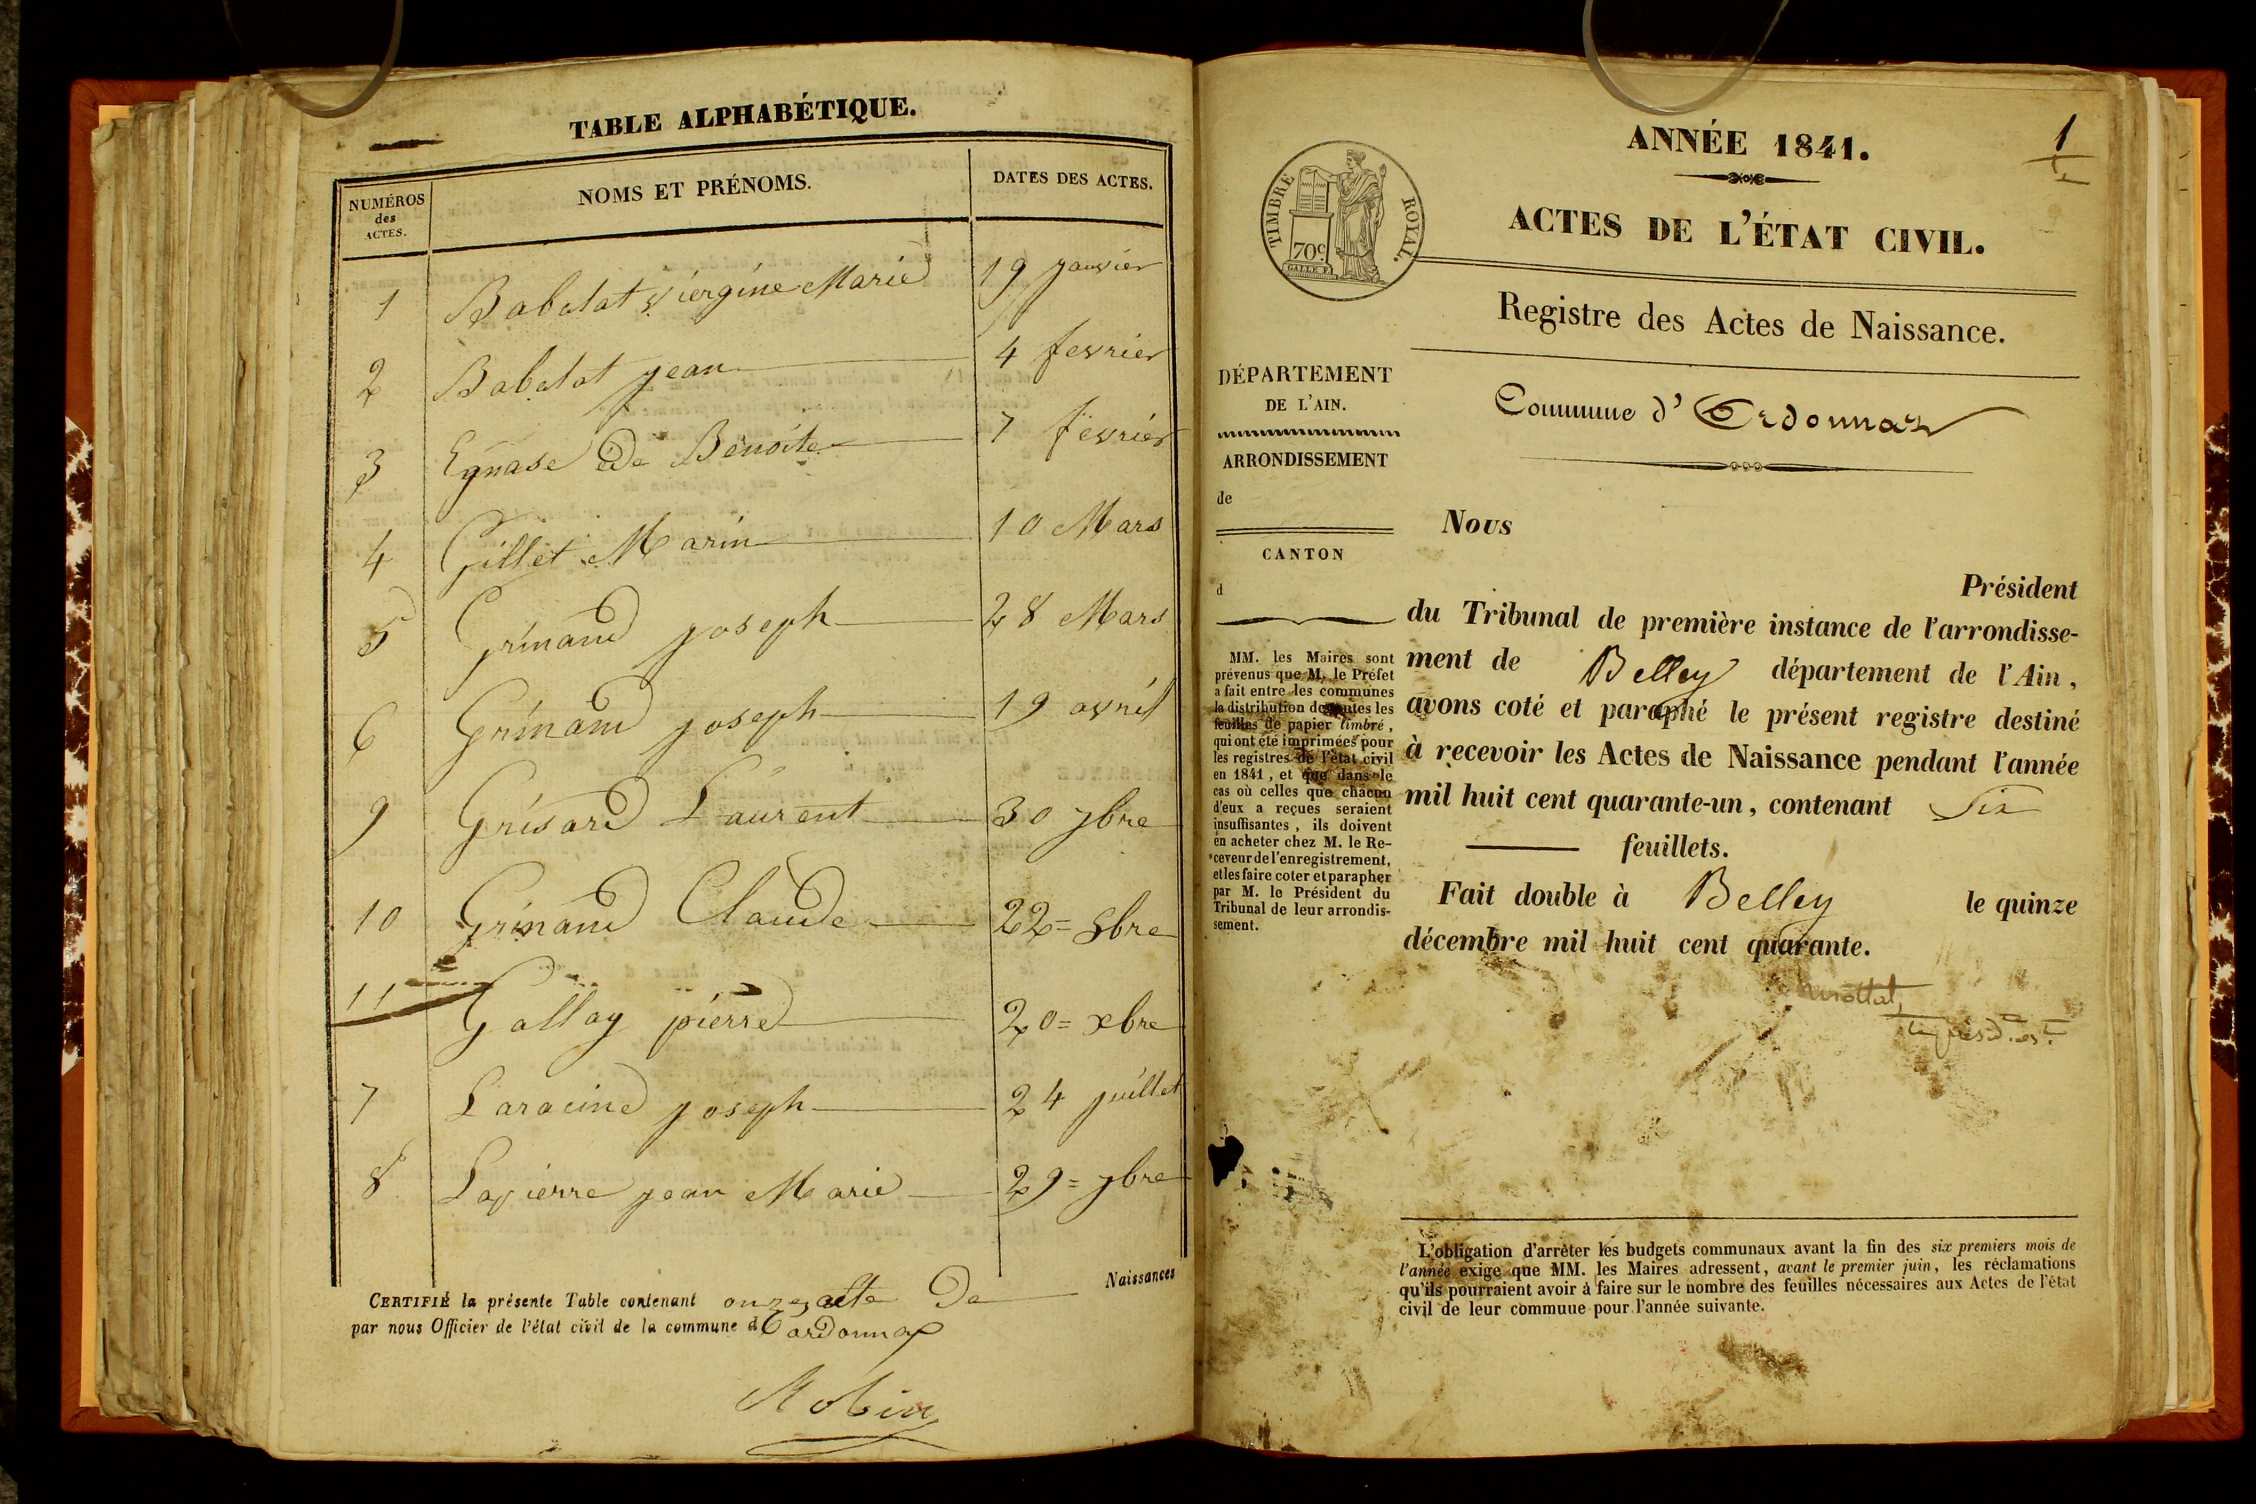 TABLE ALPHABÉTIQUE.
NUMÉROS
des
ACTES.
NOMS ET PRÉNOMS.
DATES DES ACTES.
1 Babolat viergine Marie 19 janvier
2 Babolat jean 4 fevrier
3 Egnase éde Benoite 7 fevrier
4 Gillet Marin 10 Mars
5 Grinand joseph 28 Mars
6 Grinand joseph 19 avril
9 Grisard Laurent 30 7bre
10 Grinand Claude 22= 8bre
11 Gallay pierre 20= xbre
7 Laracine joseph 24 juillet
8 Lapierre jean Marie 29= 7bre
CERTIFIÉ la présente Table contenant onze acte De Naissances
par nous Officier de l'état civil de la commune d'ordonnax
Robin
1
ANNÉE 1841.
TIMBRE ROYAL.
70c
GALLE F.
ACTES DE L'ÉTAT CIVIL.
Registre des Actes de Naissance.
Commune d' Ordonnaz
DÉPARTEMENT
DE L'AIN.
ARRONDISSEMENT
de
CANTON
d
MM. les Maires sont
prévenus que M. le Préfet
a fait entre les communes
la distribution de toutes les
feuilles de papier timbré,
qui ont été imprimées pour
les registres de l'état civil
en 1841, et que dans le
cas où celles que chacun
d'eux a reçues seraient
insuffisantes, ils doivent
en acheter chez M. le Re-
ceveur de l'enregistrement,
et les faire coter et parapher
par M. le Président du
Tribunal de leur arrondis-
sement.
Nous
Président
du Tribunal de première instance de l'arrondisse-
ment de Belley département de l'Ain,
avons coté et paraphé le présent registre destiné
à recevoir les Actes de Naissance pendant l'année
mil huit cent quarante-un, contenant Six
feuillets.
Fait double à Belley le quinze
décembre mil huit cent quarante.
L'obligation d'arrêter les budgets communaux avant la fin des six premiers mois de
l'année exige que MM. les Maires adressent, avant le premier juin, les réclamations
qu'ils pourraient avoir à faire sur le nombre des feuilles nécessaires aux Actes de l'état
civil de leur commune pour l'année suivante.